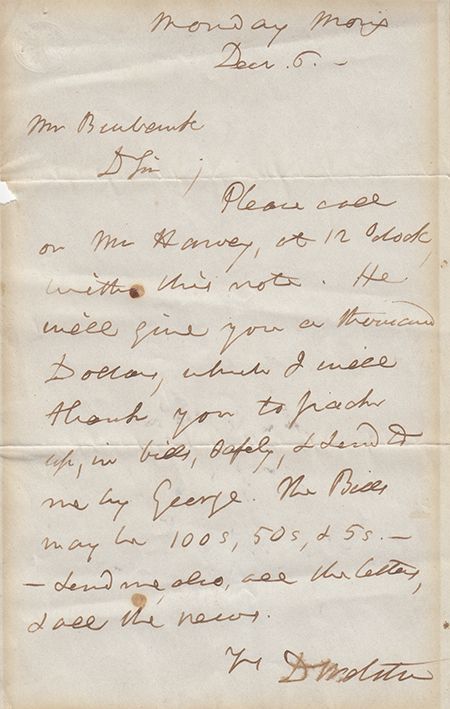 Monday Morng
Decr. 6. -
Mr Burbank
D Sir ;
Please call
on Mr Harvey, at 12 O'clock,
with this note. He
will give you a thousand
Dollars, which I will
thank you to pack
up, in bills, safely, & send to
me by George. The Bills
may be 100s, 50s, & 5s. -
- Send me, also, all the letters,
& all the news.
Yrs D Webster